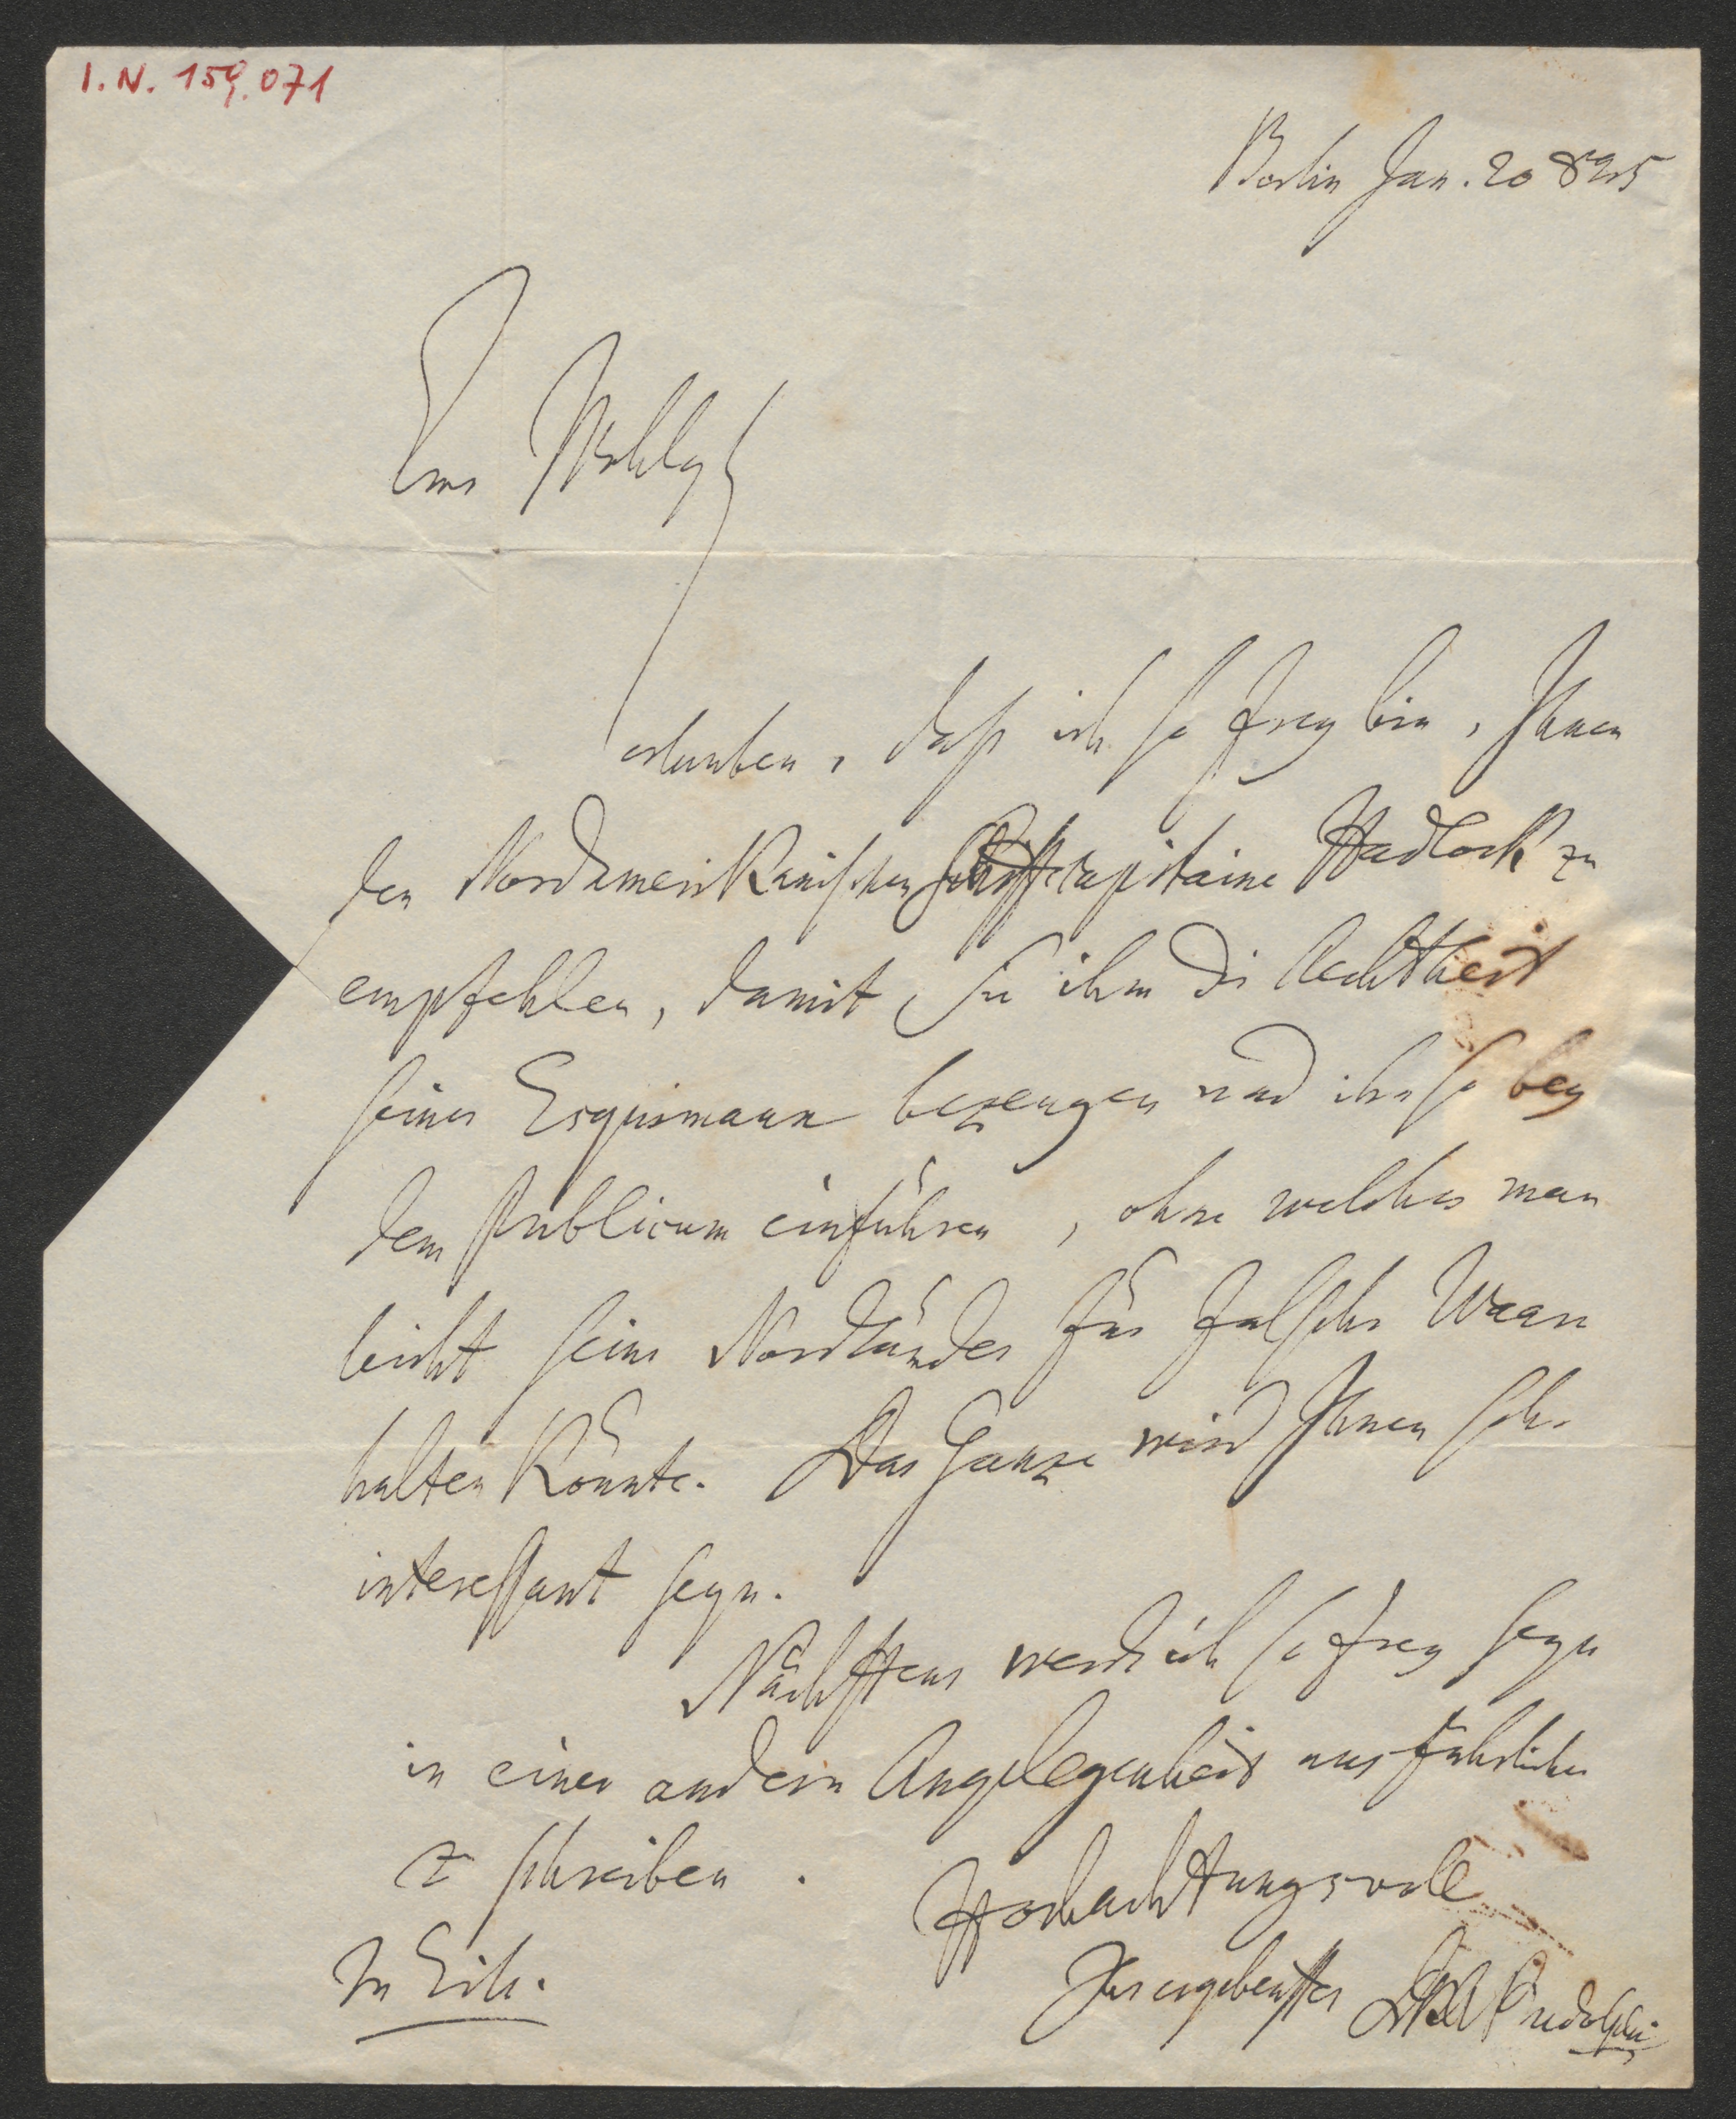 I.N. 159.071
Berlin Jan. 20 825
Ew Wohlg
erlauben, daß ich so frey bin, Ihnen
den Nordamerikanischen Schiffscapitaine Hadlock zu
empfehlen, damit Sie ihm die Aechtheit
seiner Esquimaux bezeugen und ihn so bey
dem Publicum einführen, ohne welches man
leicht seine Nordländer für falsche Waare
halten könnte. Das Ganze wird Ihnen sehr
interessant seyn.
Nächstens werde ich so frey seyn
in einer andern Angelegenheit ausführlicher
zu schreiben.
Hochachtungsvoll
In Eile.
Ihr ergebenster Rudolphi